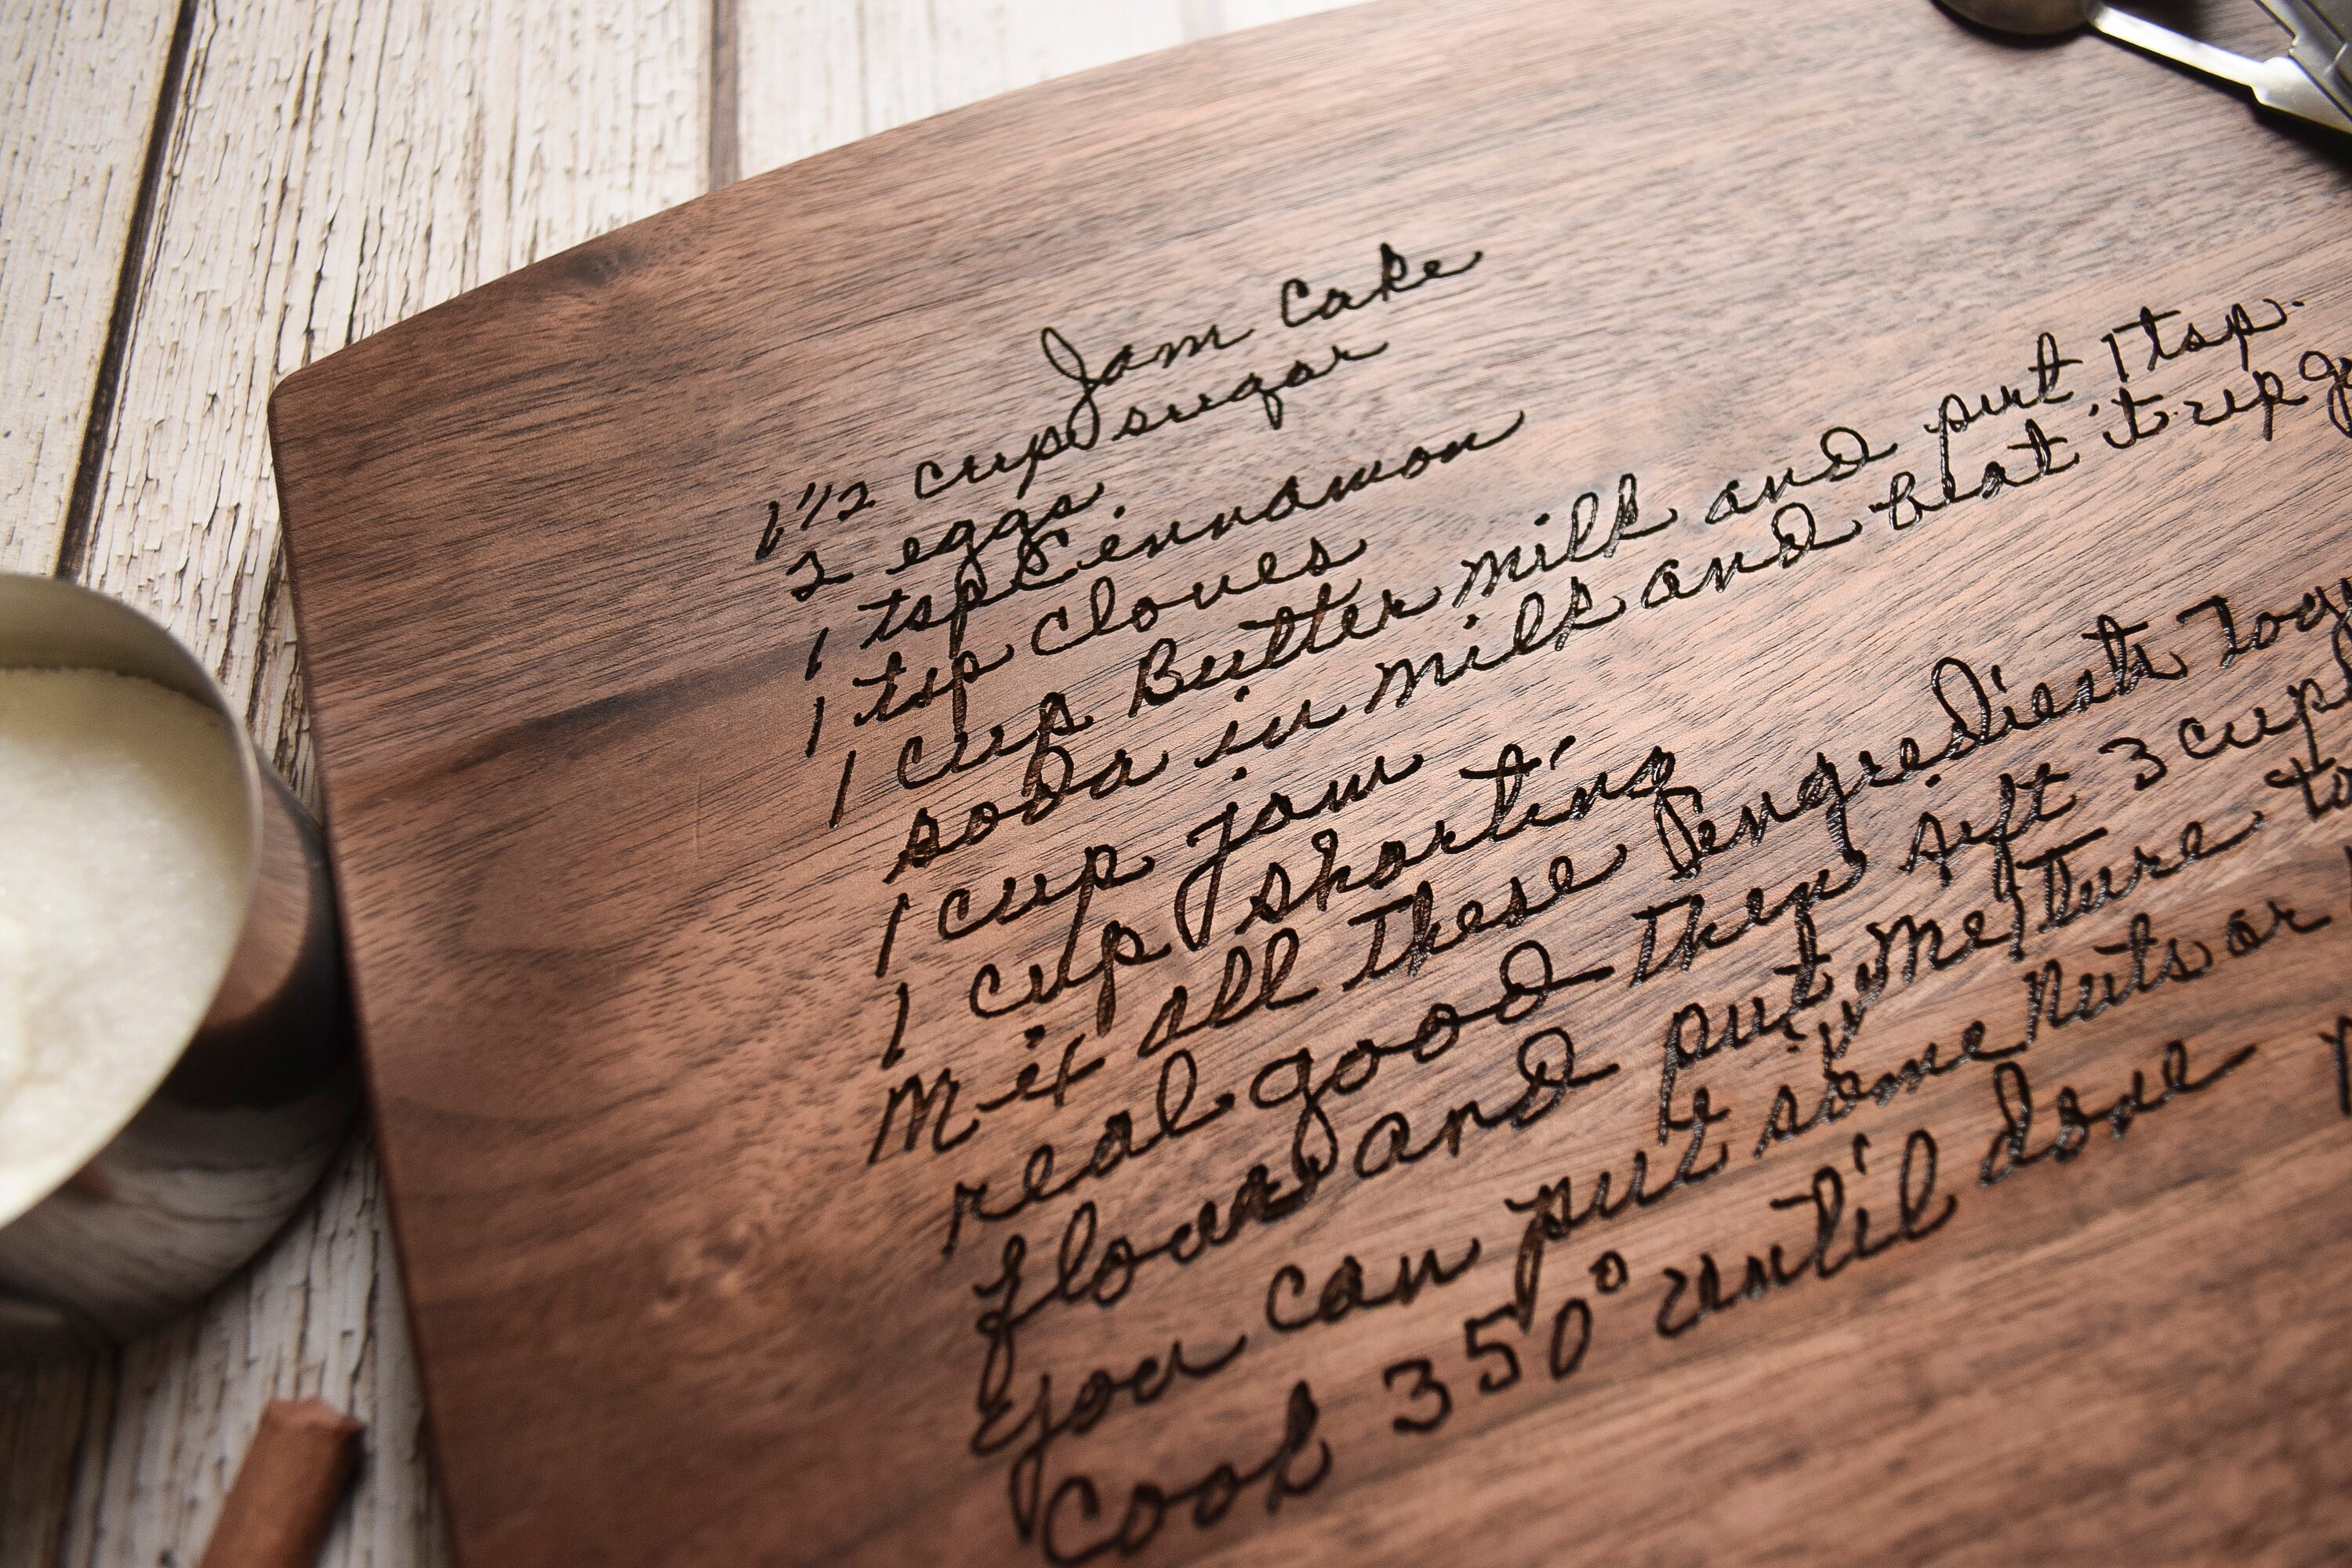 Jam Cake
1 1/2 cup sugar
2 eggs.
1 tsp Cinnamon
1 tsp Cloves
1 cup Butter milk and put 1 tsp.
soda in milk and beat it up
1 cup jam
1 cup shorting
Mix all these Pengredients
real good then sift 3 cup
flour and put
you can put some nuts or
Cook 350° until done